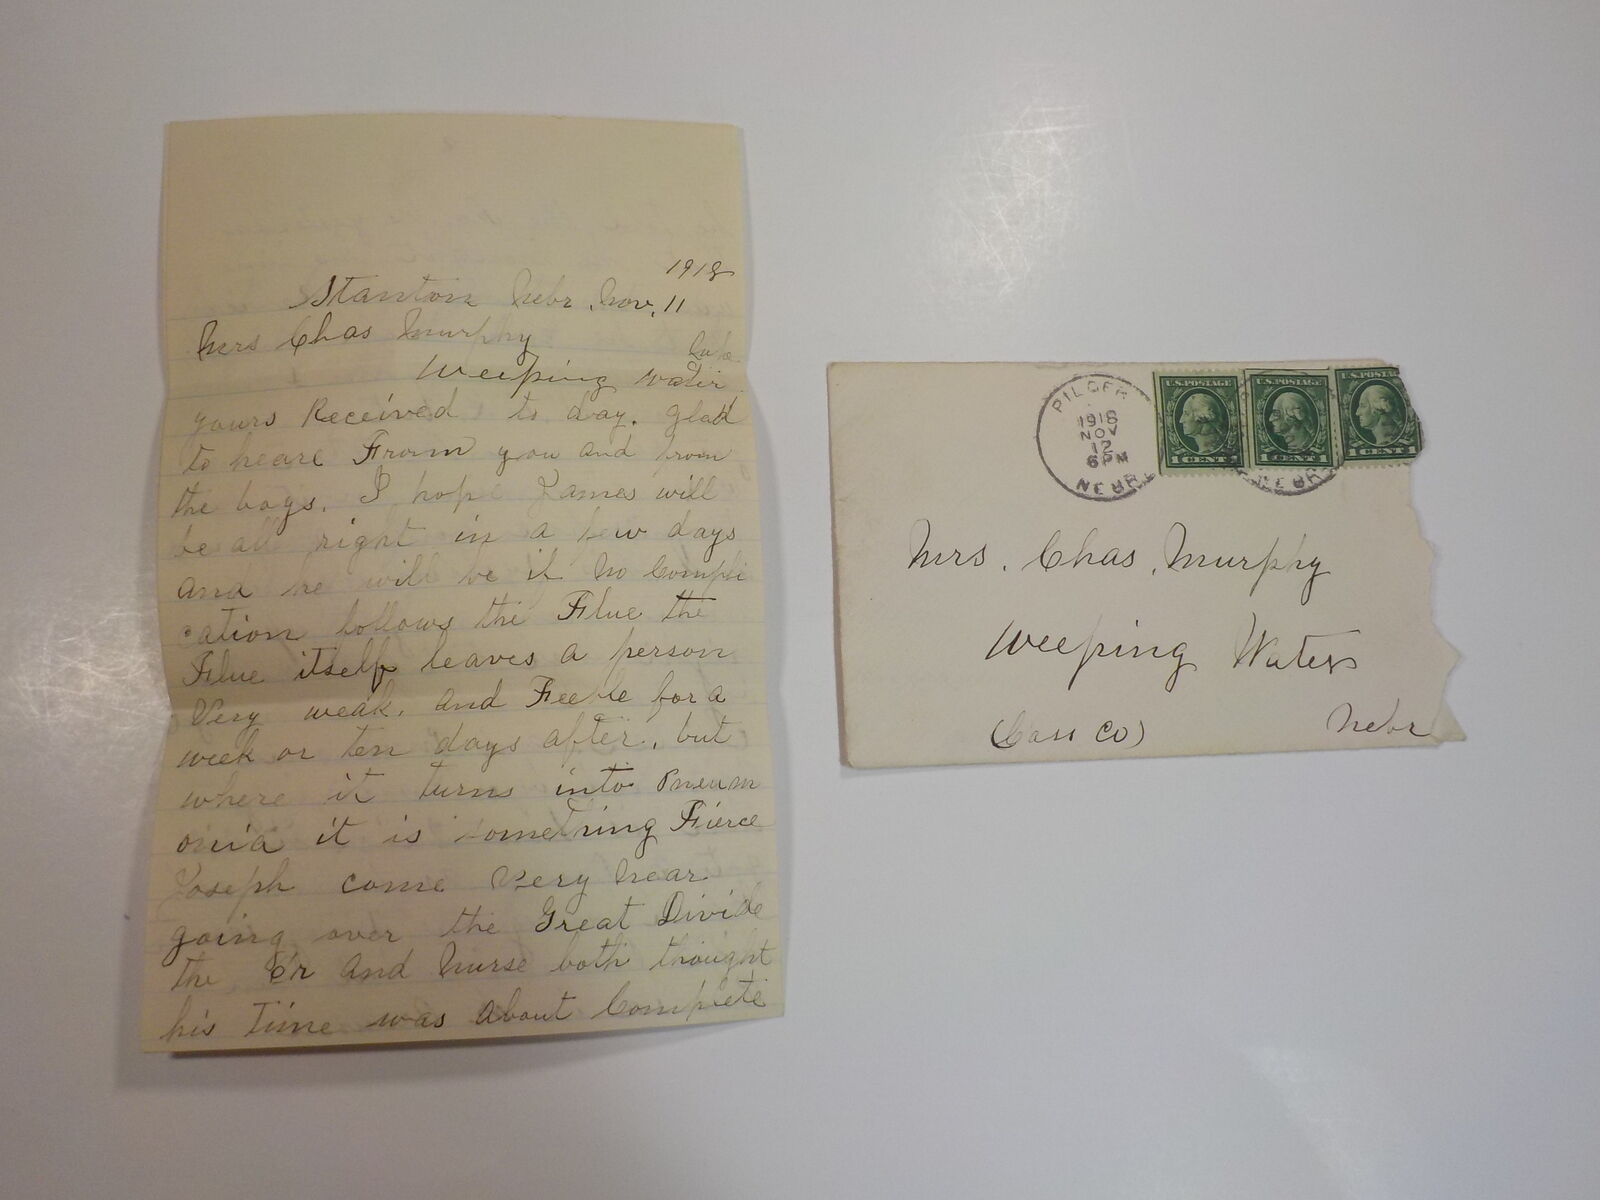 1918
Stanton Nebr. Nov. 11
Mrs Chas Murphy
Weeping Water
yours Received to day. glad
to heare From you and from
the boys. I hope James will
be all right in a few days
and he will be if No Compli
cation follows the Flue the
Flue itself leaves a person
Very weak. and Feeble for a
week or ten days after, but
where it turns into Pneum
onia it is something Fierce
Joseph come very near
going over the Great Divide
the Dr and Nurse both thought
his Time was About Complete
PILGER
1918
NOV
12
6 PM
NEBR.
U.S. POSTAGE
1 CENT 1
U.S. POSTAGE
1 CENT 1
U.S. POSTAGE
1 CENT
NEBR
Mrs. Chas. Murphy
Weeping Water
(Cass Co) Nebr